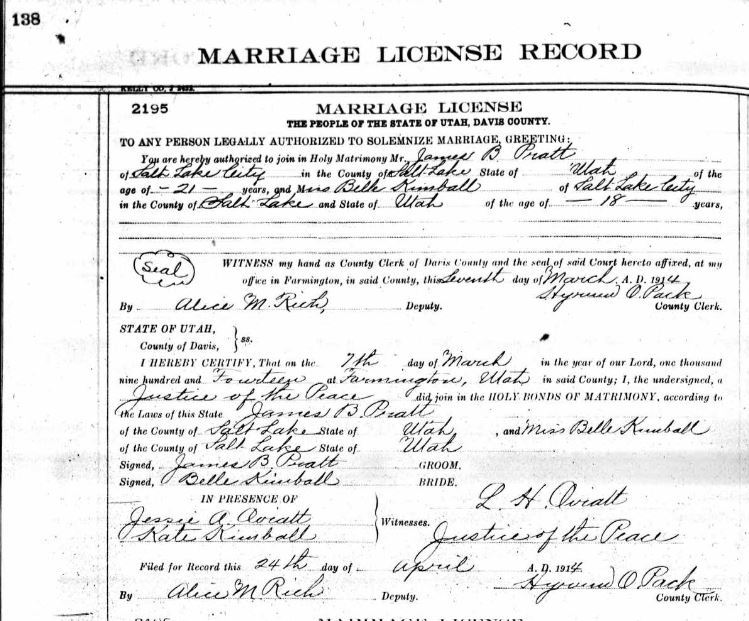 138
MARRIAGE LICENSE RECORD
KELLY CO.
2195 MARRIAGE LICENSE
THE PEOPLE OF THE STATE OF UTAH, DAVIS COUNTY.
TO ANY PERSON LEGALLY AUTHORIZED TO SOLEMNIZE MARRIAGE, GREETING:
You are hereby authorized to join in Holy Matrimony Mr. James B. Pratt
of Salt Lake City in the County of Salt Lake State of Utah of the
age of -21- years, and Miss Belle Kimball of Salt Lake City
in the County of Salt Lake and State of Utah of the age of -18- years,
Seal
WITNESS my hand as County Clerk of Davis County and the seal of said Court hereto affixed, at my
office in Farmington, in said County, this Seventh day of March, A. D. 1914
Hyrum O. Pack
By Alice M. Rich, Deputy. County Clerk.
STATE OF UTAH,
County of Davis, } ss.
I HEREBY CERTIFY, That on the 7th day of March in the year of our Lord, one thousand
nine hundred and Fourteen at Farmington, Utah in said County; I, the undersigned, a
Justice of the Peace did join in the HOLY BONDS OF MATRIMONY, according to
the Laws of this State James B. Pratt
of the County of Salt Lake State of Utah, and Miss Belle Kimball
of the County of Salt Lake State of Utah
Signed, James B. Pratt GROOM.
Signed, Belle Kimball BRIDE.
IN PRESENCE OF L. H. Oviatt
Jessie A. Oviatt
Kate Kimball } Witnesses. Justice of the Peace
Filed for Record this 24th day of April A. D. 1914
Hyrum O. Pack
By Alice M Rich Deputy. County Clerk.